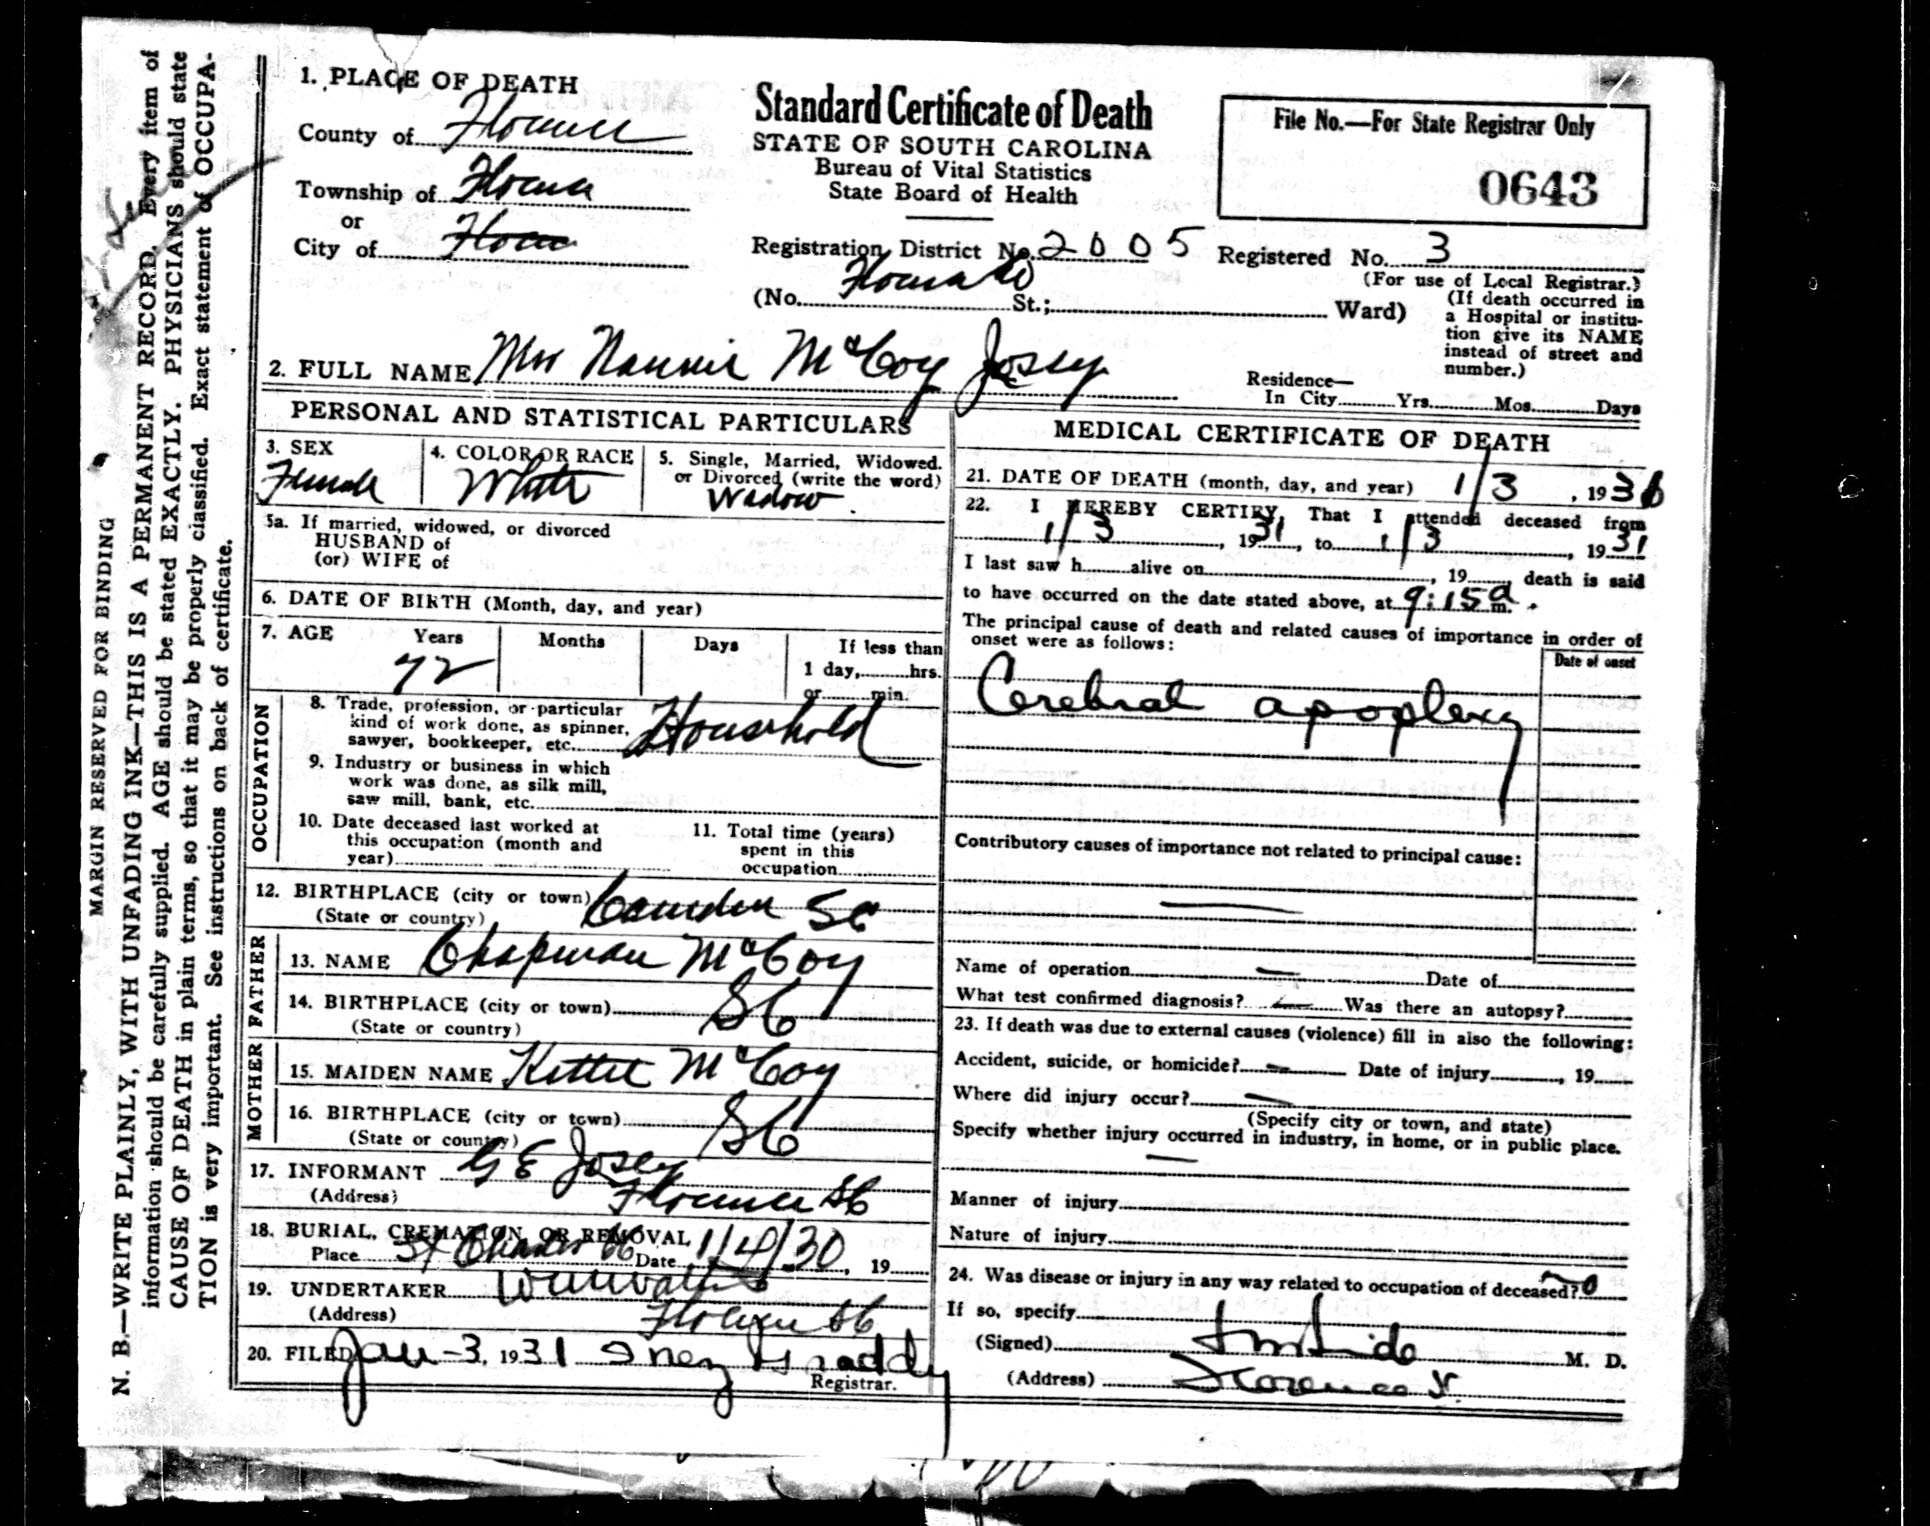 MARGIN RESERVED FOR BINDING
N. B.—WRITE PLAINLY, WITH UNFADING INK—THIS IS A PERMANENT RECORD. Every item of
information should be carefully supplied. AGE should be stated EXACTLY. PHYSICIANS should state
CAUSE OF DEATH in plain terms, so that it may be properly classified. Exact statement of OCCUPA-
TION is very important. See instructions on back of certificate.
1. PLACE OF DEATH
County of Florence
Township of Florence
or
City of
Standard Certificate of Death
STATE OF SOUTH CAROLINA
Bureau of Vital Statistics
State Board of Health
File No.—For State Registrar Only
0643
Registration District No. 2005 Registered No. 3
(For use of Local Registrar.)
(No. St.; Ward)
(If death occurred in
a Hospital or institu-
tion give its NAME
instead of street and
number.)
2. FULL NAME Mrs Nannie McCoy Josey
Residence—
In City Yrs. Mos. Days
PERSONAL AND STATISTICAL PARTICULARS
3. SEX
Female
4. COLOR OR RACE
White
5. Single, Married, Widowed.
or Divorced (write the word)
Widow
5a. If married, widowed, or divorced
HUSBAND of
(or) WIFE of
6. DATE OF BIRTH (Month, day, and year)
7. AGE Years Months Days If less than
72 1 day, hrs.
or min.
OCCUPATION
8. Trade, profession, or particular
kind of work done, as spinner,
sawyer, bookkeeper, etc. Household
9. Industry or business in which
work was done, as silk mill,
saw mill, bank, etc.
10. Date deceased last worked at
this occupation (month and
year)
11. Total time (years)
spent in this
occupation
12. BIRTHPLACE (city or town) Camden SC
(State or country)
FATHER
13. NAME Chapman McCoy
14. BIRTHPLACE (city or town) SC
(State or country)
MOTHER
15. MAIDEN NAME Kittie McCoy
16. BIRTHPLACE (city or town) SC
(State or country)
17. INFORMANT G E Josey
(Address) Florence SC
18. BURIAL, CREMATION, OR REMOVAL
Place St Charles SC Date 1/4/30, 19
19. UNDERTAKER
(Address) Florence SC
20. FILED Jan-3, 1931 Inez Graddy
Registrar.
MEDICAL CERTIFICATE OF DEATH
21. DATE OF DEATH (month, day, and year) 1/3, 193
22. I HEREBY CERTIFY, That I attended deceased from
1/3, 1931, to 1/3, 1931
I last saw h alive on , 19 , death is said
to have occurred on the date stated above, at 9:15 a m.
The principal cause of death and related causes of importance in order of
onset were as follows:
Date of onset
Cerebral apoplexy
Contributory causes of importance not related to principal cause:
Name of operation — Date of
What test confirmed diagnosis? — Was there an autopsy?
23. If death was due to external causes (violence) fill in also the following:
Accident, suicide, or homicide? — Date of injury , 19
Where did injury occur? —
(Specify city or town, and state)
Specify whether injury occurred in industry, in home, or in public place.
—
Manner of injury
Nature of injury
24. Was disease or injury in any way related to occupation of deceased? no
If so, specify
(Signed) M. D.
(Address) Florence